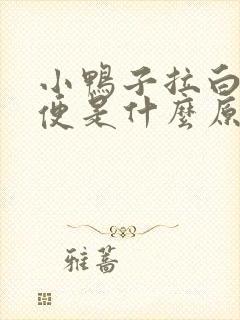 小鴨子拉白
便是什麼原
雅蕎